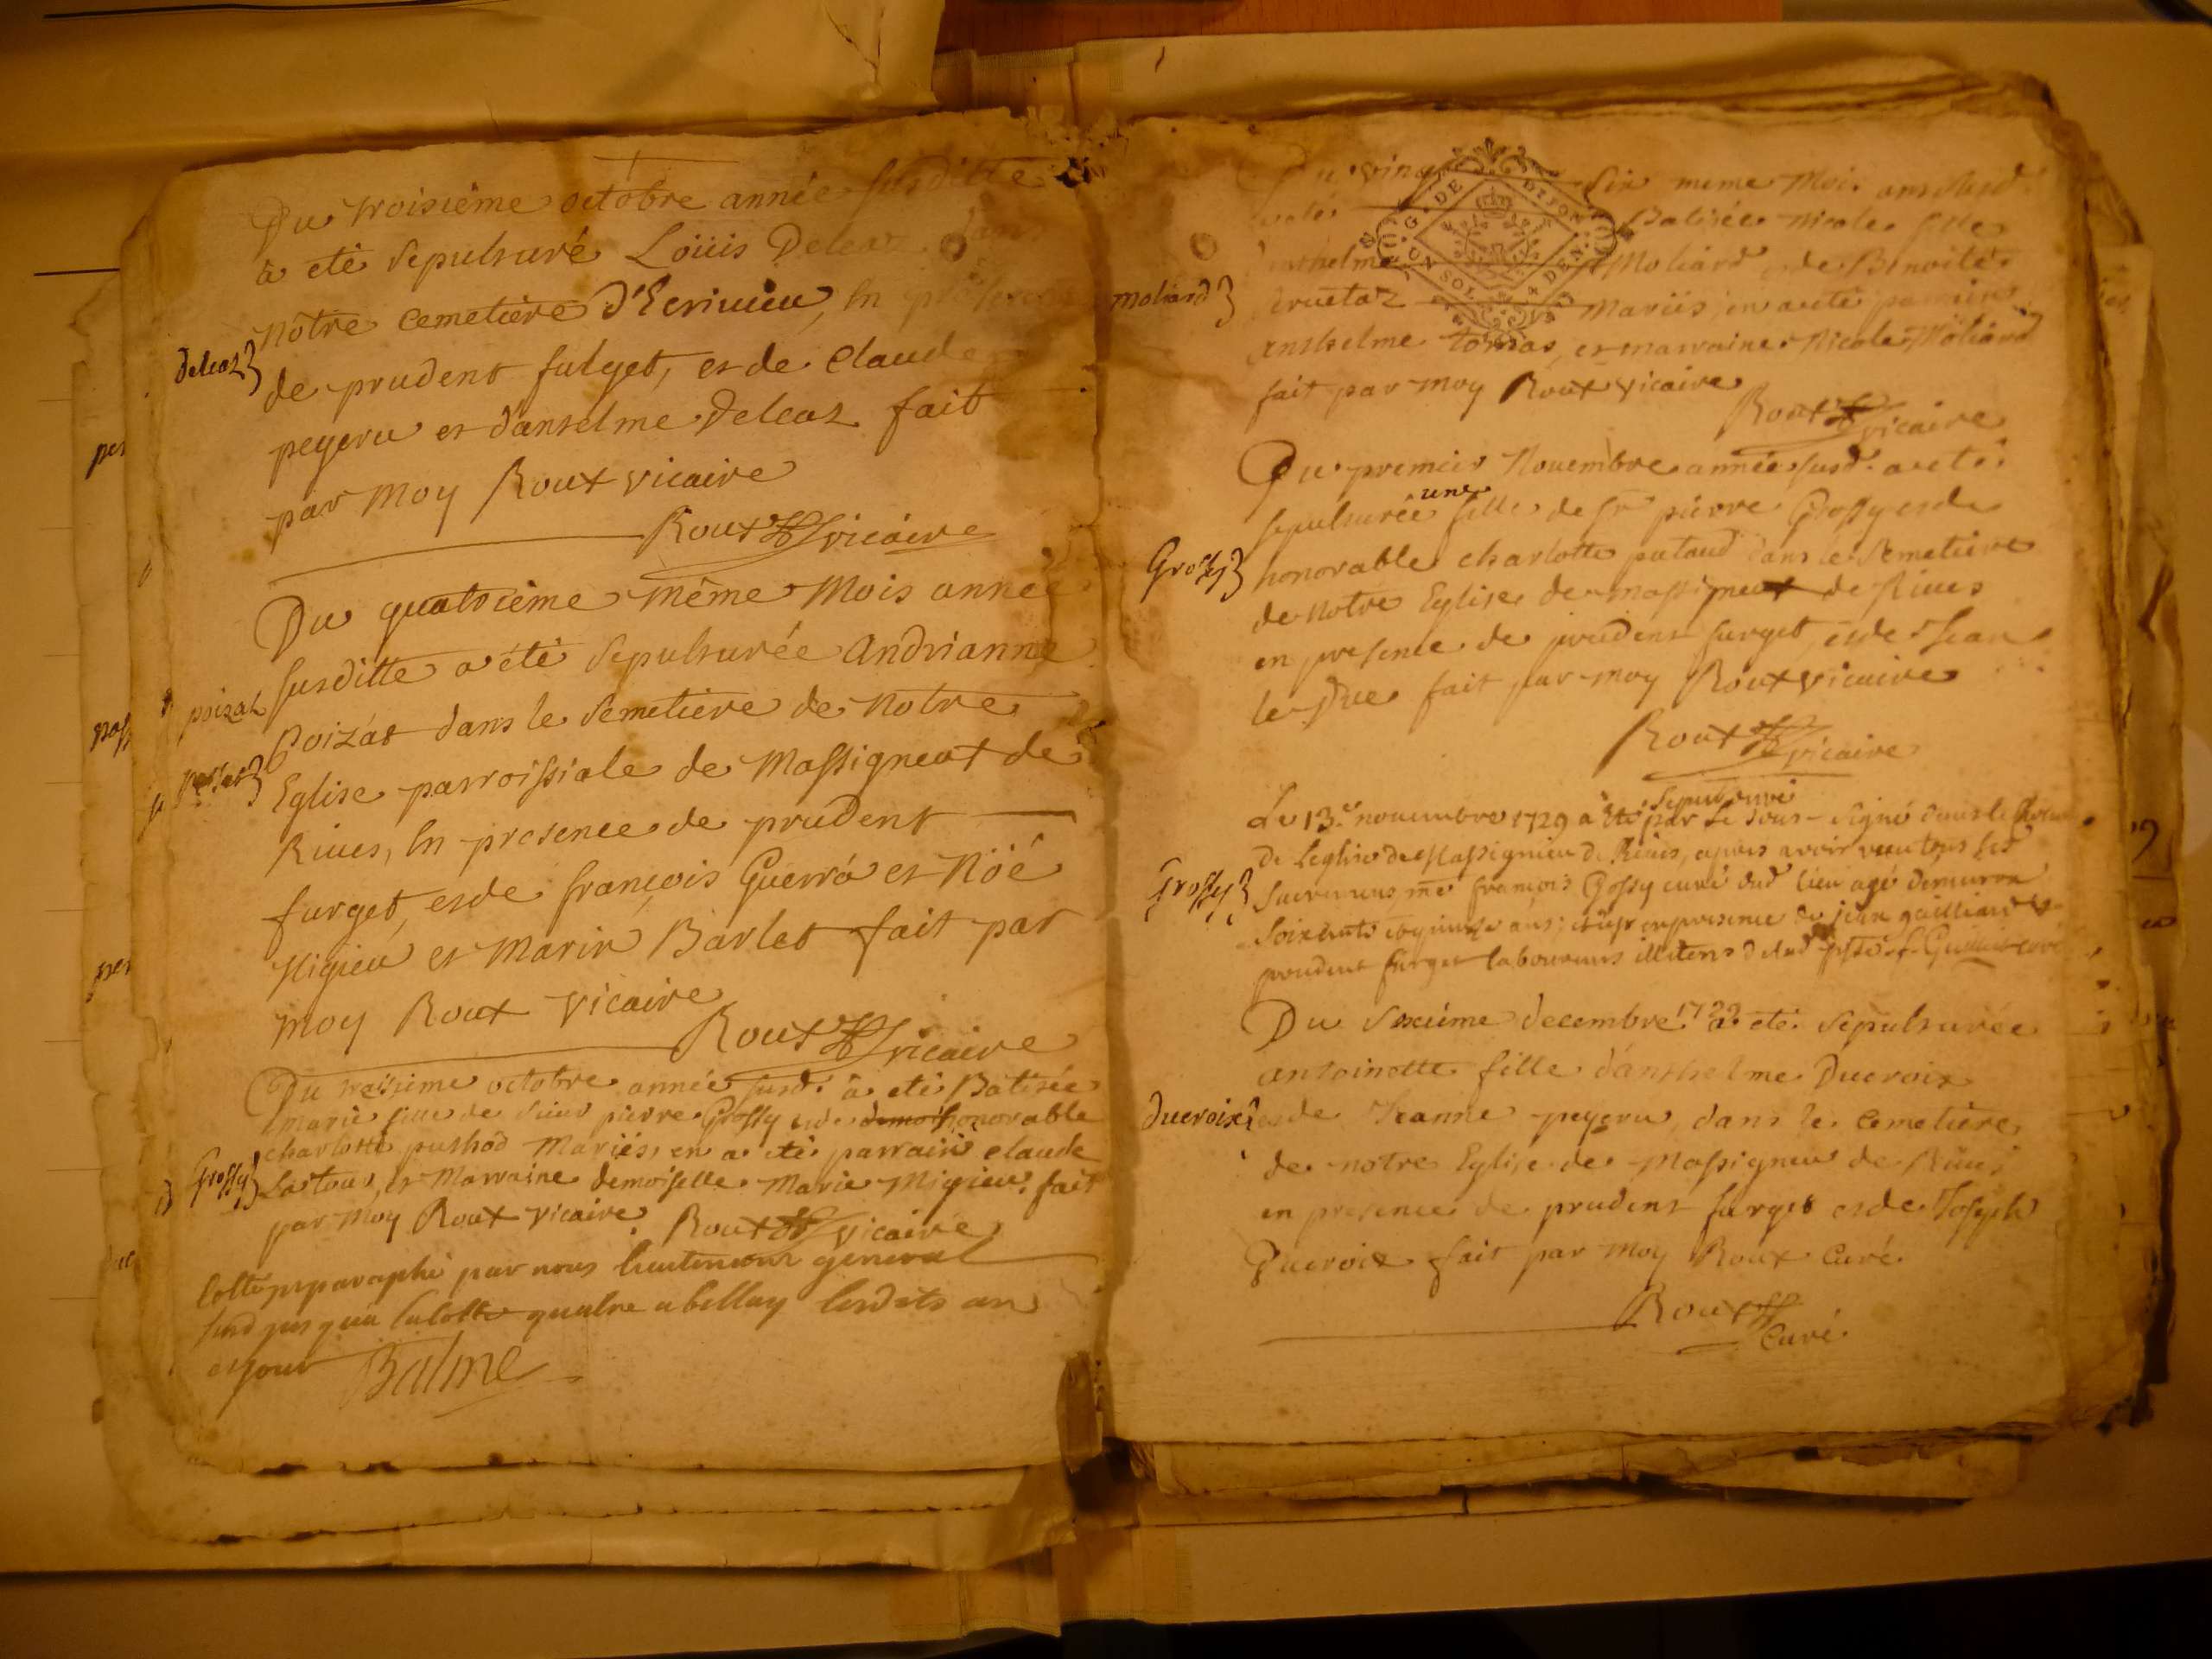 Du troisième octobre année susditte
a eté sepulturé Loüis Deleaz dans
notre cemetiere d'Ecriuieu, en presence
deleaz
de prudent furget, et de claude
peyeru et d'anselme Deleaz fait
par moy Roux vicaire
Roux vicaire
Du quatrième même Mois année
susditte a été sepulturée Andrianne
poizat
Poizat dans le semetiere de Notre
Eglise parroissiale de Massigneux de
Riues, en presence de prudent
furget, et de françois Guerrá et Nöé
Migieu et Marin Barlet fait par
moy Roux vicaire
Roux vicaire
Du treisieme octobre année susd. a eté Batisée
marie fille de sieur pierre Grossy et de honorable
charlotte puthod Mariés, en a eté parrain claude
Grossy
La tour, et Marraine demoiselle Marie Migieu. fait
par Moy Roux vicaire. Roux vicaire
cotté et paraphé par nous lieutenant general
susd jusqua la cotte quatre a belley lesdits an
et jour Balme
Du vingt six meme Mois an susd.
a eté Batisée Nicole fille
G. DE DIJON
UN SOL 4 DEN.
d'anthelme Moliard et de Benoite
moliard
cruetaz Mariés, en a eté parrain
Anthelme et marraine Nicole Moliard
fait par moy Roux vicaire
Roux vicaire
Du premier Nouembre année susd. a eté
une
sepulturée fille de Sr pierre Grossy et de
Grossy
honorable charlotte putaud dans le semetiere
de Notre Eglise de massigneux de Riues
en presence de prudent furget, et de Jean
le Duc fait par moy Roux vicaire
Roux vicaire
sepulturé
Le 13e nouembre 1729 a été par le sous-signé dans le
de Leglise de Massignieu de Riues, apres avoir receu tous ses
Grossy
sacremens, me françois Grossy curé dud lieu agé denuiron
soixante et quinze ans; et ce en presence de jean gailliard et
prudent furget laboureurs dud
Du sixième decembre 1729 a eté sepulturée
antoinette fille d'anthelme Ducroix
Ducroix
et de Jeanne peyeru, dans le cemetiere
de notre Eglise de Massigneu de Riues
en presence de prudent furget et de Joseph
Ducroix fait par moy Roux Curé.
Roux
Curé.